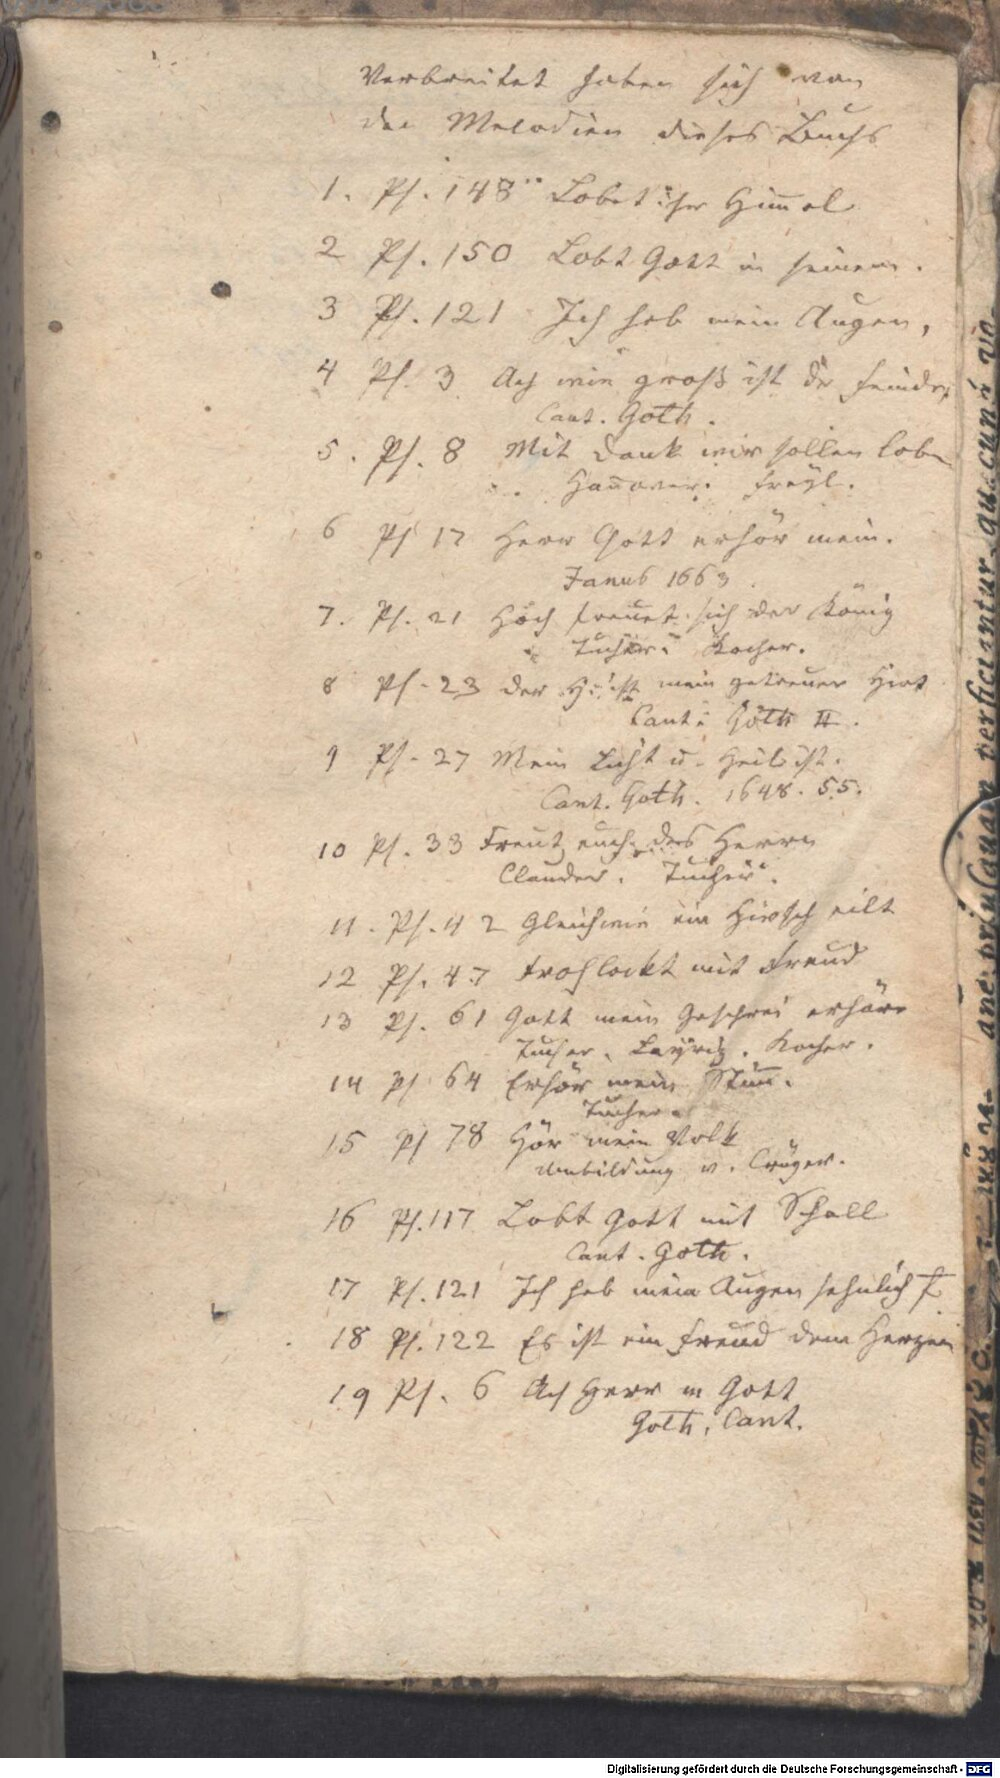 Verbreitet haben sich von
den Melodien dieses Buchs
1. Ps. 148 Lobet ihr Himmel
2 Ps. 150 Lobt Gott in seinem.
3 Ps. 121 Ich heb mein Augen,
4 Ps. 3 Ach wie groß ist der feinde,
Cant. Goth.
5. Ps. 8 Mit Dank wir sollen loben
Hannover. Freyl.
6 Ps 17 Herr Gott erhör mein.
Janus 1663.
7. Ps. 21 Hoch freuet sich der König
Tucher. Kocher.
8 Ps. 23 der H. ist mein getreuer Hirt
Cant. Goth II.
9 Ps. 27 Mein Licht u. Heil ist.
Cant. Goth. 1648. 55.
10 Ps. 33 Freut euch des Herrn
Clauder. Tucher.
11. Ps. 42 Gleichwie ein Hirsch eilt
12 Ps. 47 Frohlockt mit Freud
13 Ps. 61 Gott mein Geschrei erhöre
Tucher. Layriz. Kocher.
14 Ps 64 Erhör mein Stim̄.
Tucher.
15 Ps 78 Hör mein Volk
Umbildung v. Crüger.
16 Ps. 117 Lobt Gott mit Schall
Cant. Goth.
17 Ps. 121 Ich heb mein Augen sehnlich
18 Ps. 122 Es ist ein Freud dem Herzen
19 Ps. 6 Ach Herr m Gott
Goth. Cant.
Digitalisierung gefördert durch die Deutsche Forschungsgemeinschaft - DFG